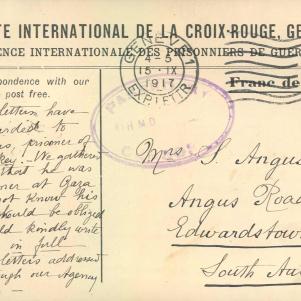 TE INTERNATIONAL DE LA CROIX-ROUGE, GE
ENCE INTERNATIONALE DES PRISONNIERS DE GUER
GENÈVE 1
4-5
15·IX
1917
EXP. LETTR.
Franc de
pondence with our
post free.
letters have
arded to
s, prisoner of
key. We gathered
that he was
ner at Gaza
not know his
should be obliged
ld kindly write
in full
letters addressed
ugh our Agency
Mrs S. Angus
Angus Road
Edwardstow
South Au